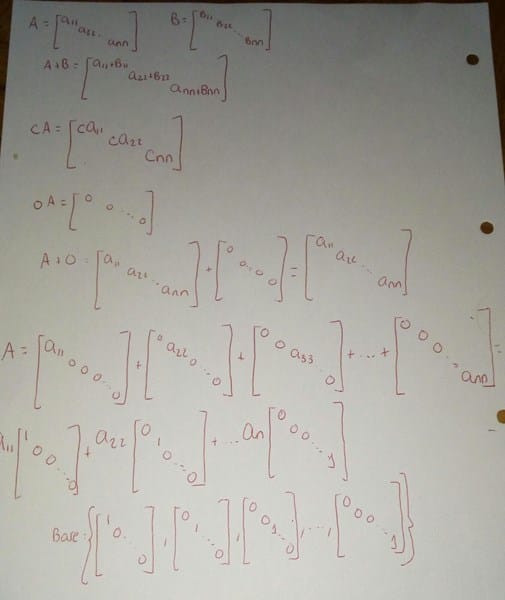 A = [a11 a22 . ann] B = [B11 B22 ... Bnn]
A+B = [a11+B11 a22+B22 ann+Bnn]
cA = [ca11 ca22 cnn]
0A = [0 0 ... 0]
A+0 = [a11 a22 ... ann] + [0 0 ... 0 0] = [a11 a22 ... ann]
A = [a11 0 0 0 ... 0] + [0 a22 0 ... 0] + [0 0 a33 ... 0] + ... + [0 0 0 ... ann] =
a11 [1 0 0 ... 0] + a22 [0 1 0 ... 0] + ... an [0 0 0 ... 1]
Base: {[1 0 ... 0], [0 1 ... 0], [0 0 1 ... 0], ..., [0 0 0 ... 1]}